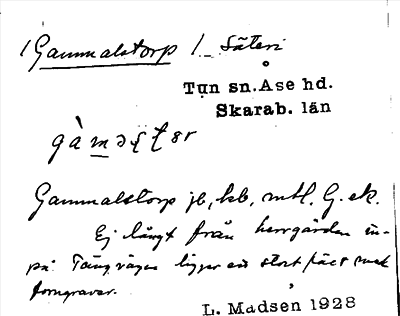 Gammalstorp 1 Säteri
Tun sn. Åse hd.
Skarab. län
Gammalstorp jb, kb, mtl. G. ek.
Ej långt från herrgården in-
på vägen ligger ett stort fält med
forngravar.
L. Madsen 1928